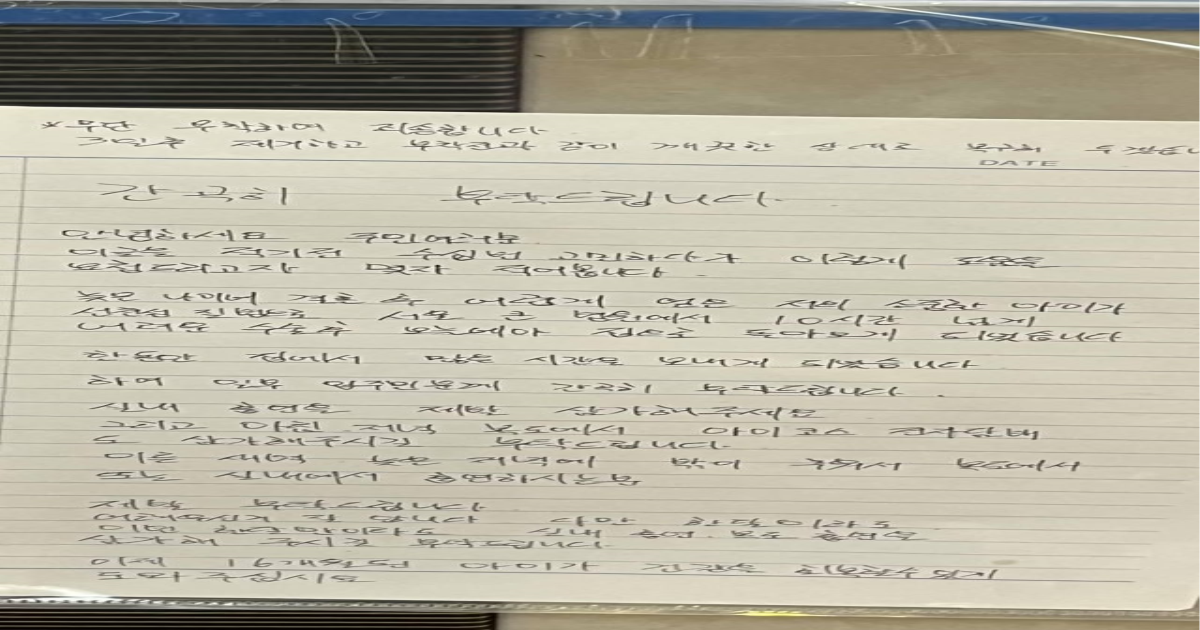 *무단 부착하여 죄송합니다
3일후 제거하고 부착전과 같이 깨끗한 상태로 복구해 두겠습니
DATE
간곡히 부탁드립니다.
안녕하세요 주민여러분
이글을 적기전 수십번 고민하다가 이렇게 도움을
요청드리고자 몇자 적어봅니다.
늦은 나이에 결혼 후 어렵게 얻은 저희 소중한 아이가
선천성 질병으로 서울 큰 병원에서 10시간 넘게
어려운 수술후 오늘에야 집으로 돌아오게 되었습니다
한동안 집에서 많은 시간을 보내게 되었습니다
하여 일부 입주민분께 간곡히 부탁드립니다.
실내 흡연을 제발 삼가해주세요
그리고 아침 저녁 복도에서 아이코스 전자담배
도 삼가해주시길 부탁드립니다.
이른 새벽 늦은 저녁에 밖이 추워서 복도에서
또는 실내에서 흡연하시는분
제발 부탁드립니다
어려우신거 잘 압니다 다만 한달이라도
이번 한달만이라도 실내 흡연. 복도 흡연을
삼가해 주시길 부탁드립니다.
이제 16개월된 아이가 건강을 회복할수 있게
도와주십시요